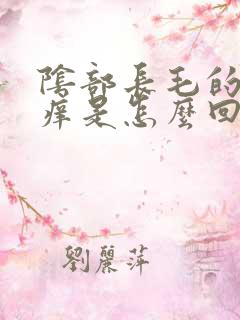 陰部長毛的
痒是怎麼回
劉麗萍